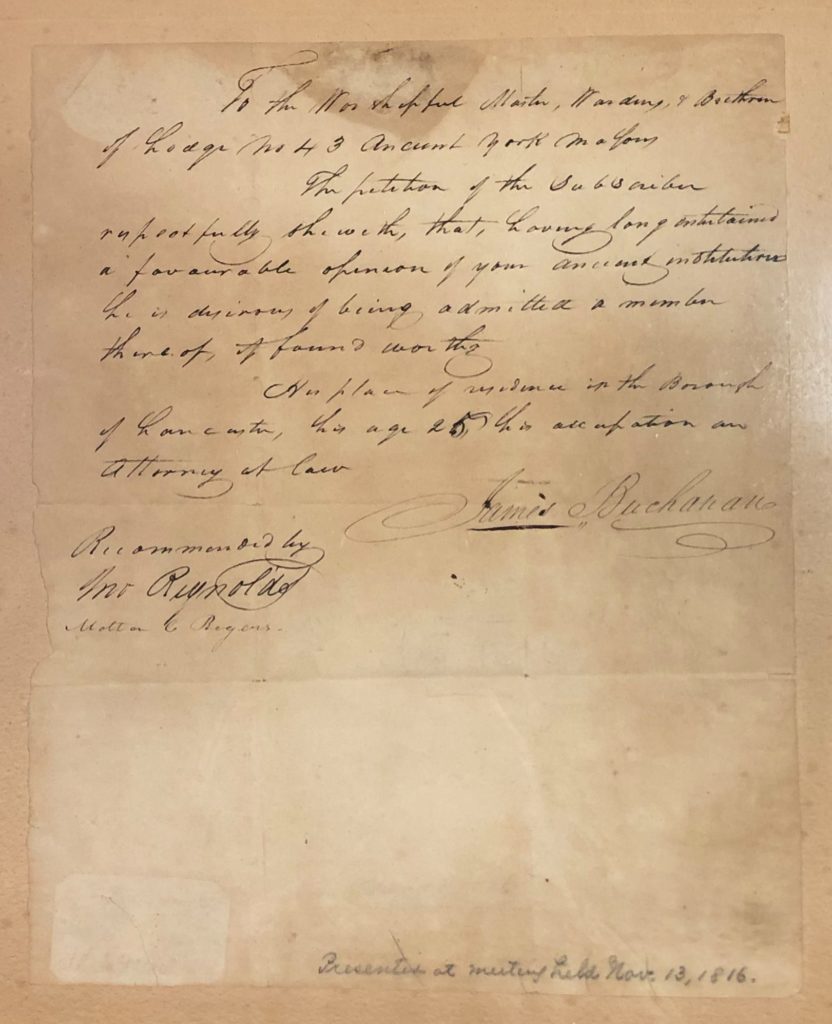 To the Worshipful Master, Wardens, & Brethren
of Lodge No 43 Ancient York Masons
The petition of the Subscriber
respectfully sheweth, that, having long entertained
a favourable opinion of your ancient institution
he is desirous of being admitted a member
thereof, if found worthy
His place of residence is the Borough
of Lancaster, his age 25, his occupation an
Attorney at Law
James Buchanan
Recommended by
Jno Reynolds
Molton C Rogers.
Presented at meeting held Nov. 13, 1816.